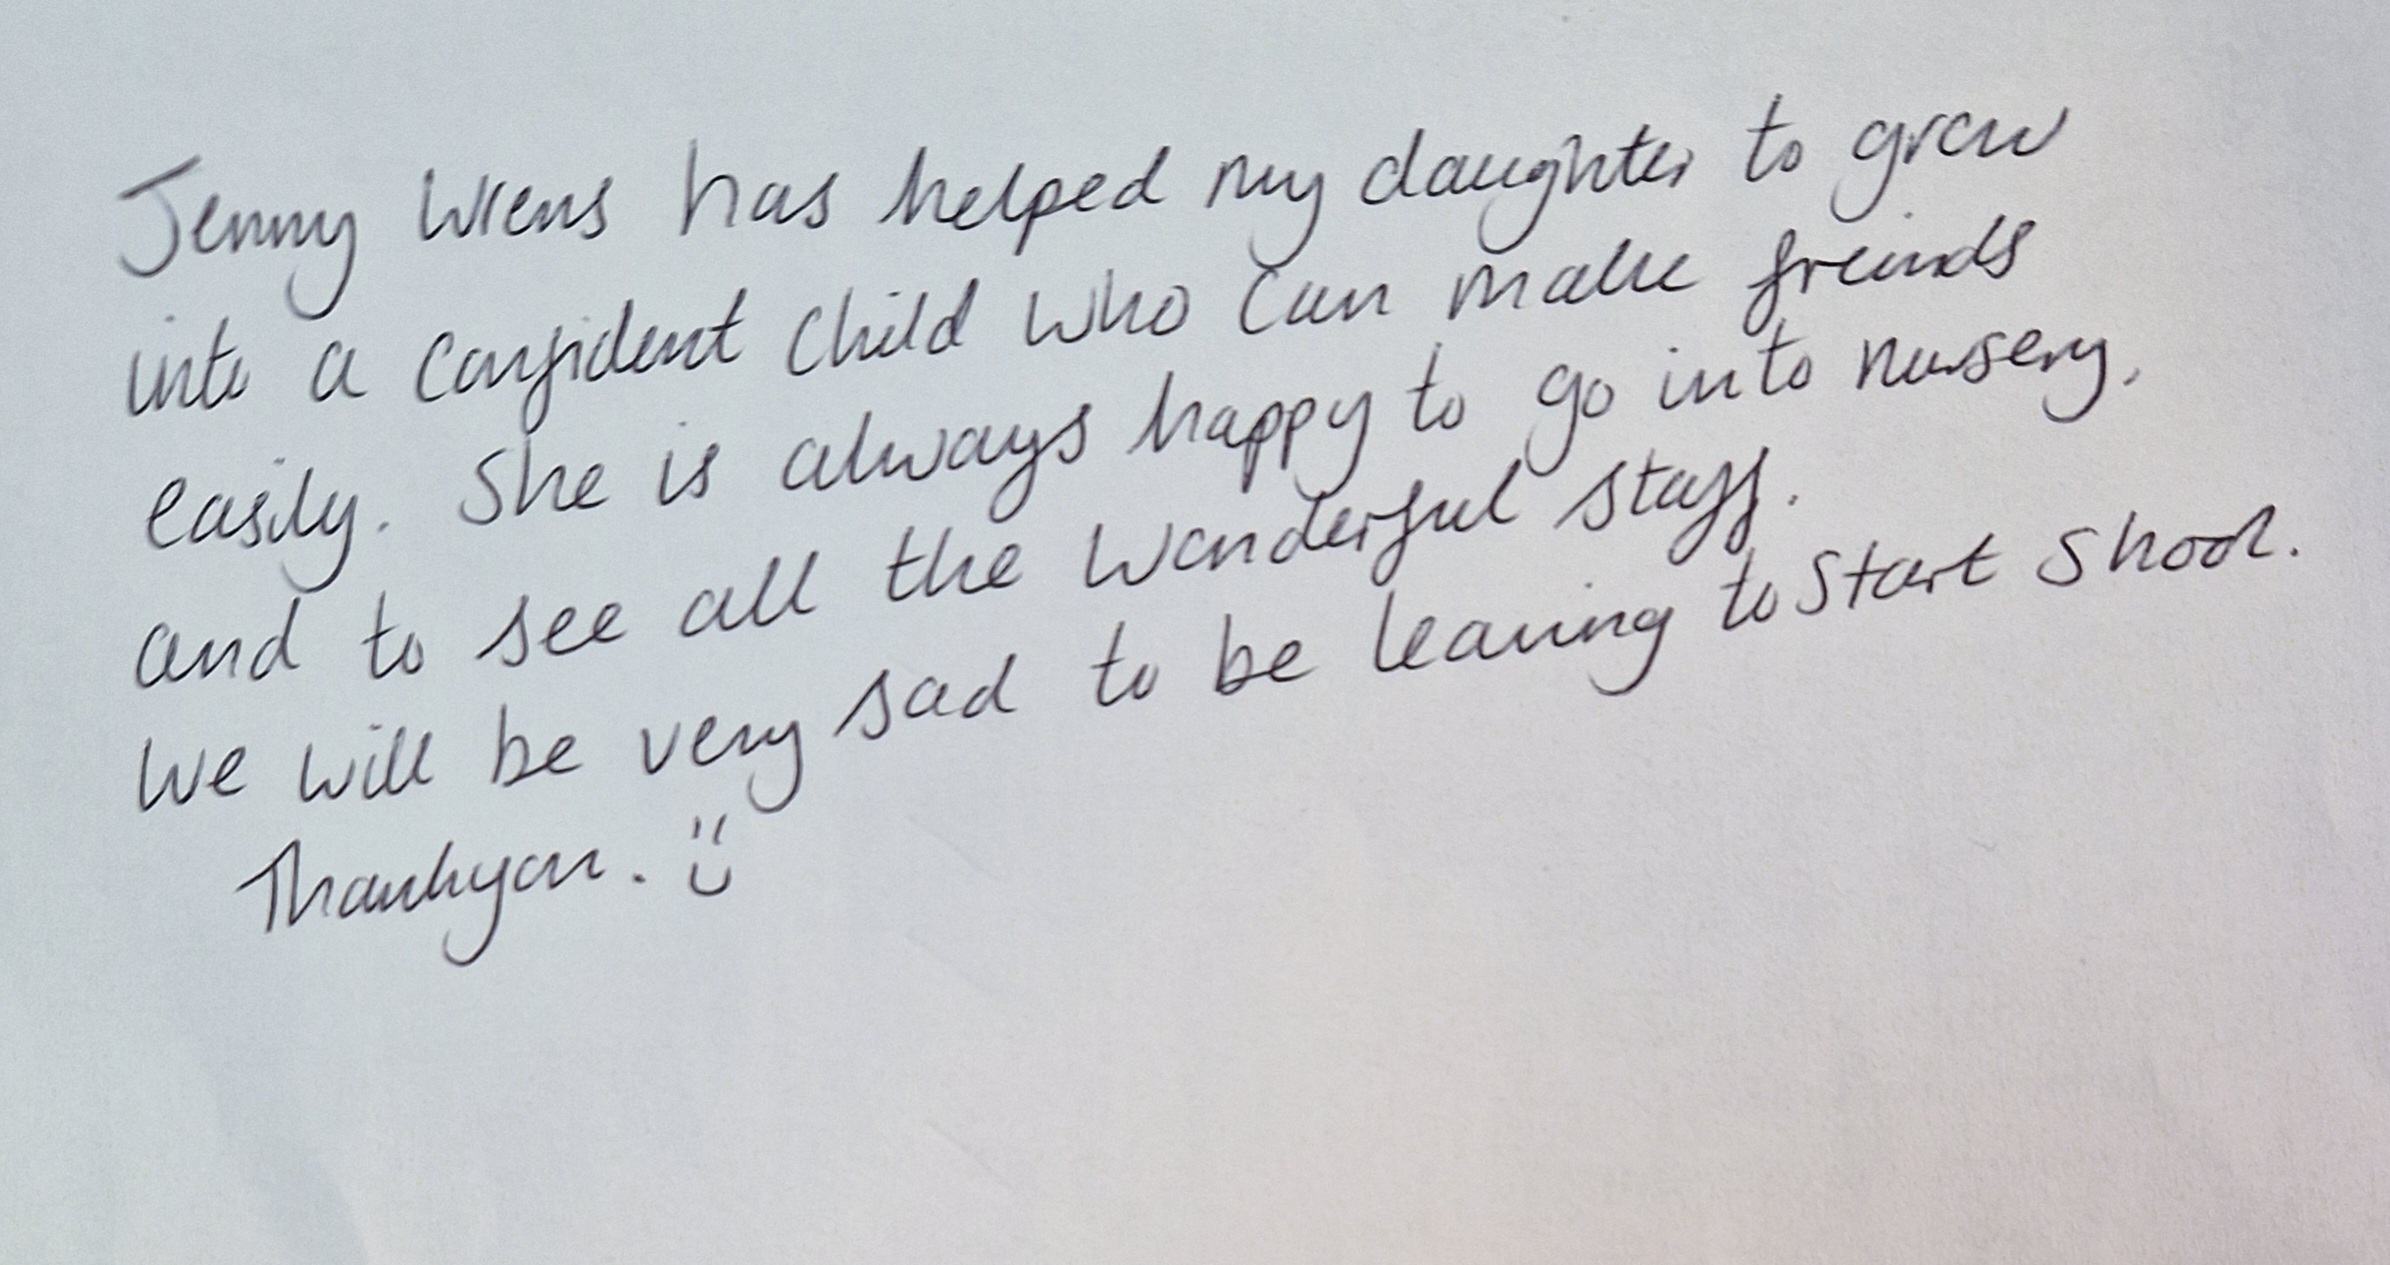 Jenny Wrens has helped my daughter to grow
into a confident child who can make freinds
easily. She is always happy to go into nursery,
and to see all the wonderful staff.
We will be very sad to be leaving to start shool.
Thankyou. :)